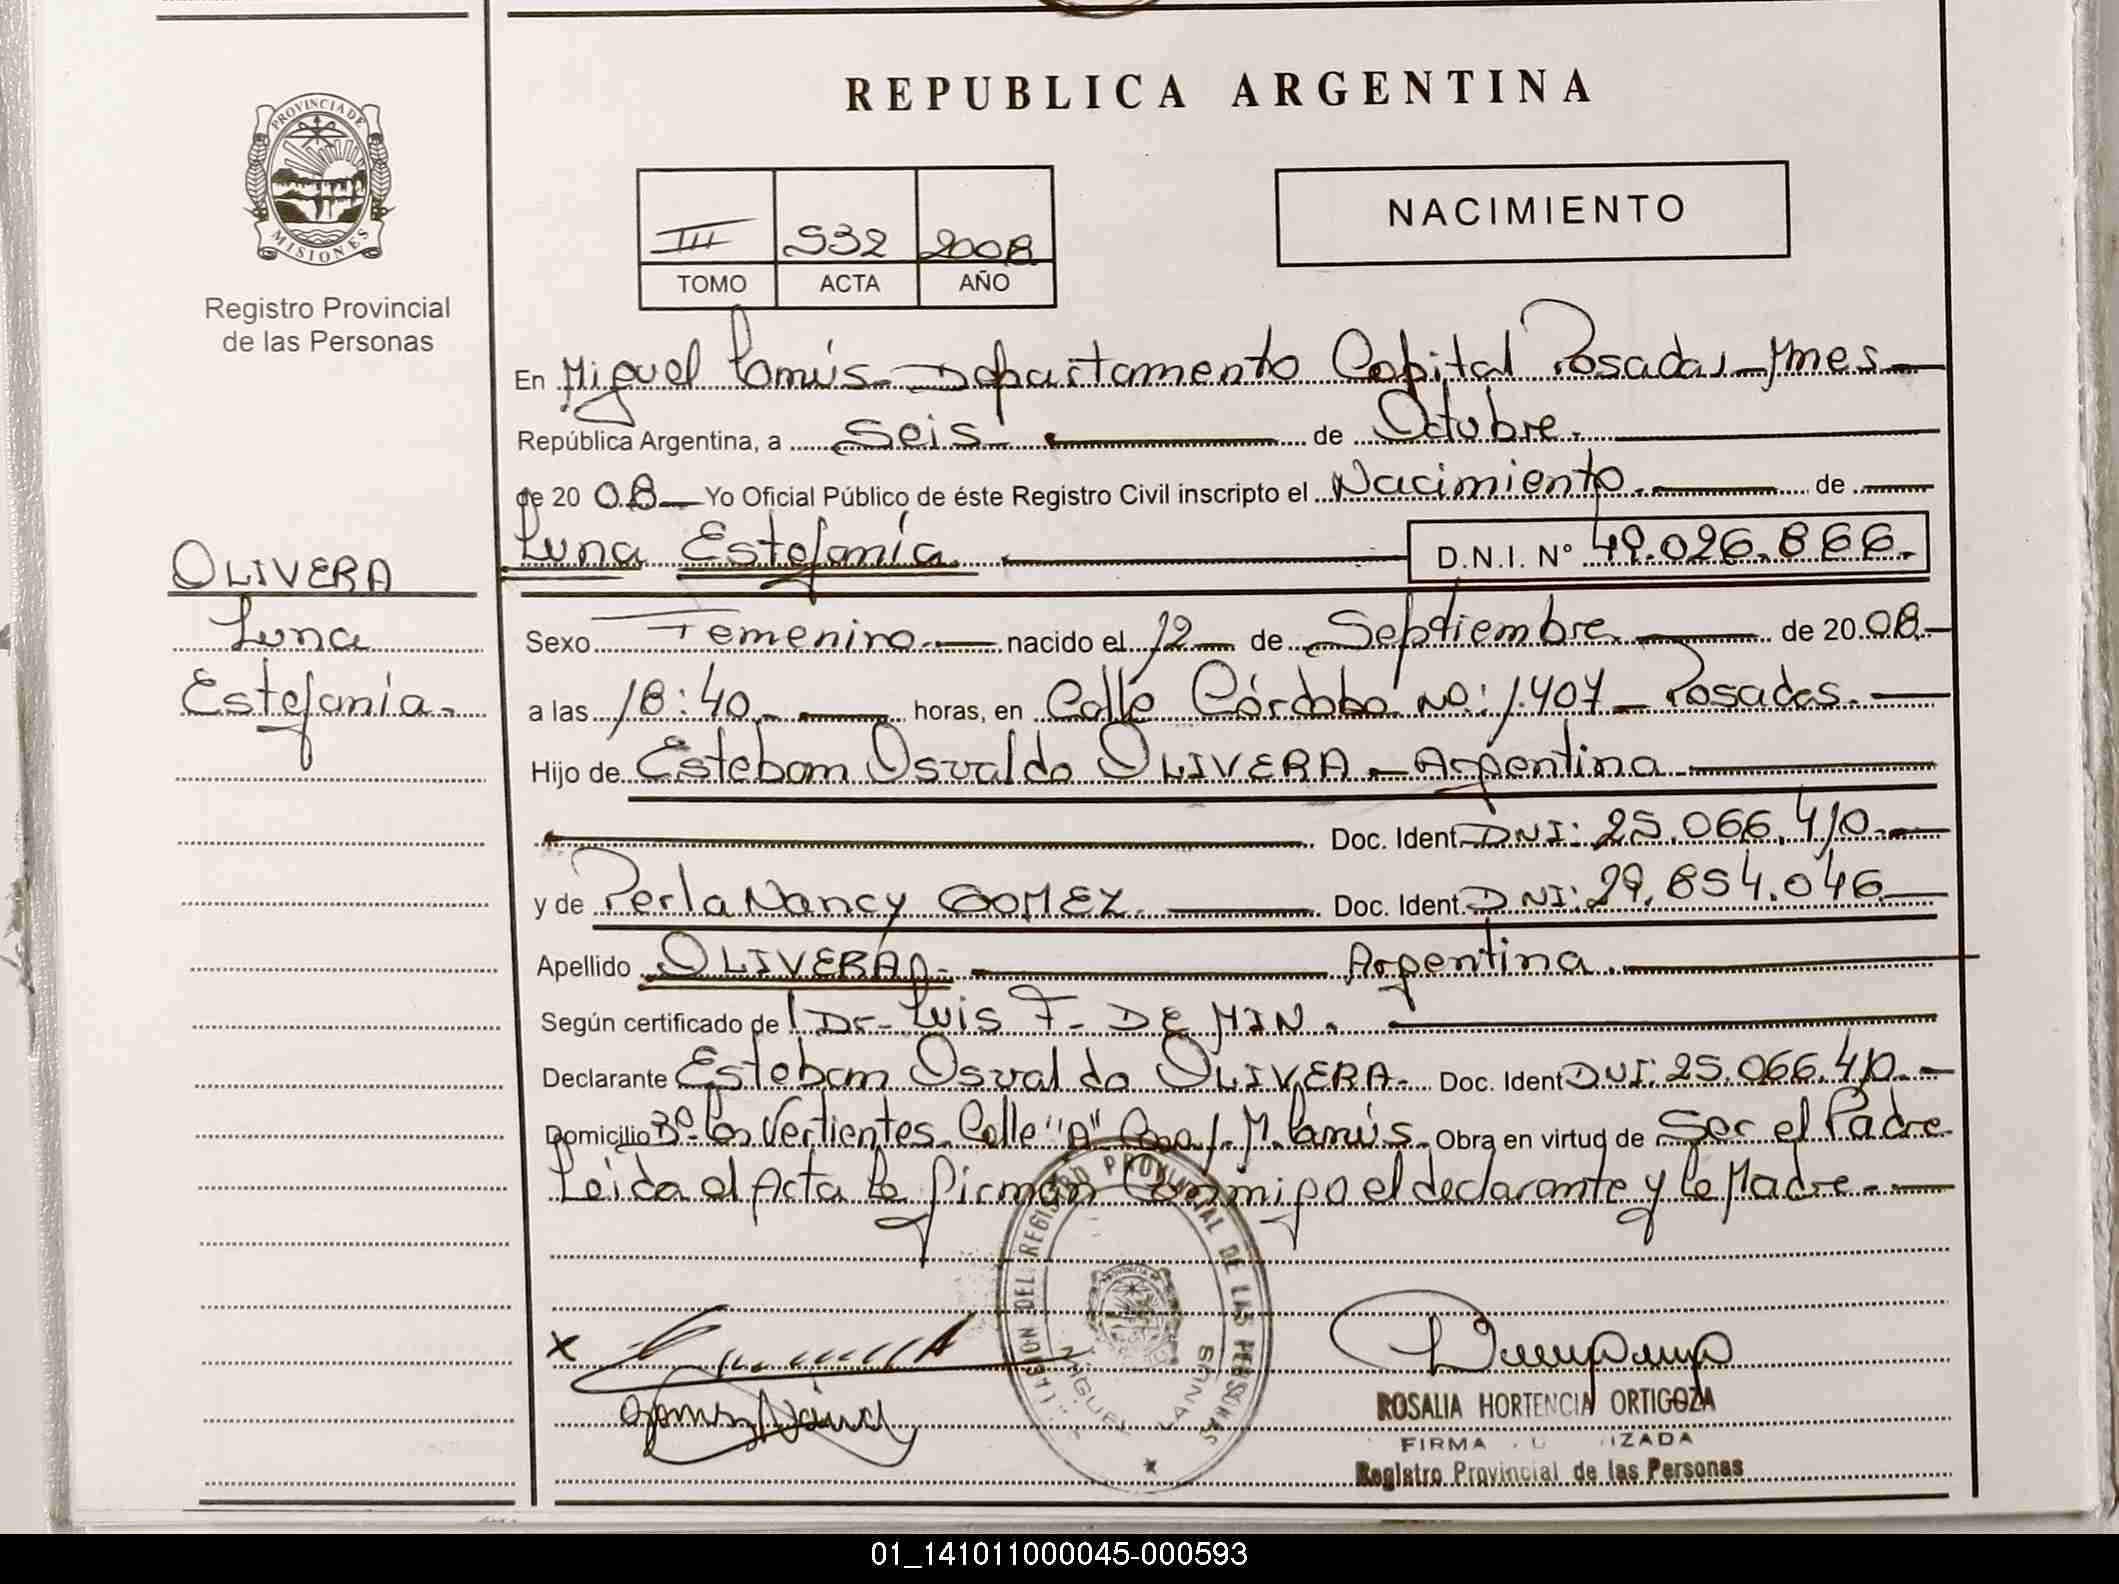 REPUBLICA ARGENTINA
PROVINCIA DE
MISIONES
Registro Provincial
de las Personas
III 532 2008
TOMO ACTA AÑO
NACIMIENTO
En Miguel Lanús - Departamento Capital Posadas - Mnes -
República Argentina, a Seis - de Octubre.
de 20 08 - Yo Oficial Público de éste Registro Civil inscripto el Nacimiento. de
Luna Estefanía. D.N.I. N° 49.026.866.
OLIVERA
Luna
Estefanía.
Sexo Femenino. nacido el 12 de Septiembre de 20 08.
a las 18:40. horas, en Calle Córdoba No: 1.407 - Posadas.
Hijo de Esteban Osvaldo OLIVERA - Argentina
Doc. Ident. DNI: 25.066.410.
y de Perla Nancy GOMEZ. Doc. Ident. DNI: 29.854.046
Apellido OLIVERA. Argentina.
Según certificado de Dr. Luis F. DE MIN.
Declarante Esteban Osvaldo OLIVERA. Doc. Ident DNI: 25.066.410.
Domicilio B° Las Vertientes Calle "A" M. Lanús. Obra en virtud de Ser el Padre
Leida el Acta la firman Conmigo el declarante y la Madre.
DEL REGISTRO PROVINCIAL DE LAS PERSONAS
MIGUEL LANUS
x
Gomez Nancy
ROSALIA HORTENCIA ORTIGOZA
FIRMA
Registro Provincial de las Personas
01_141011000045-000593